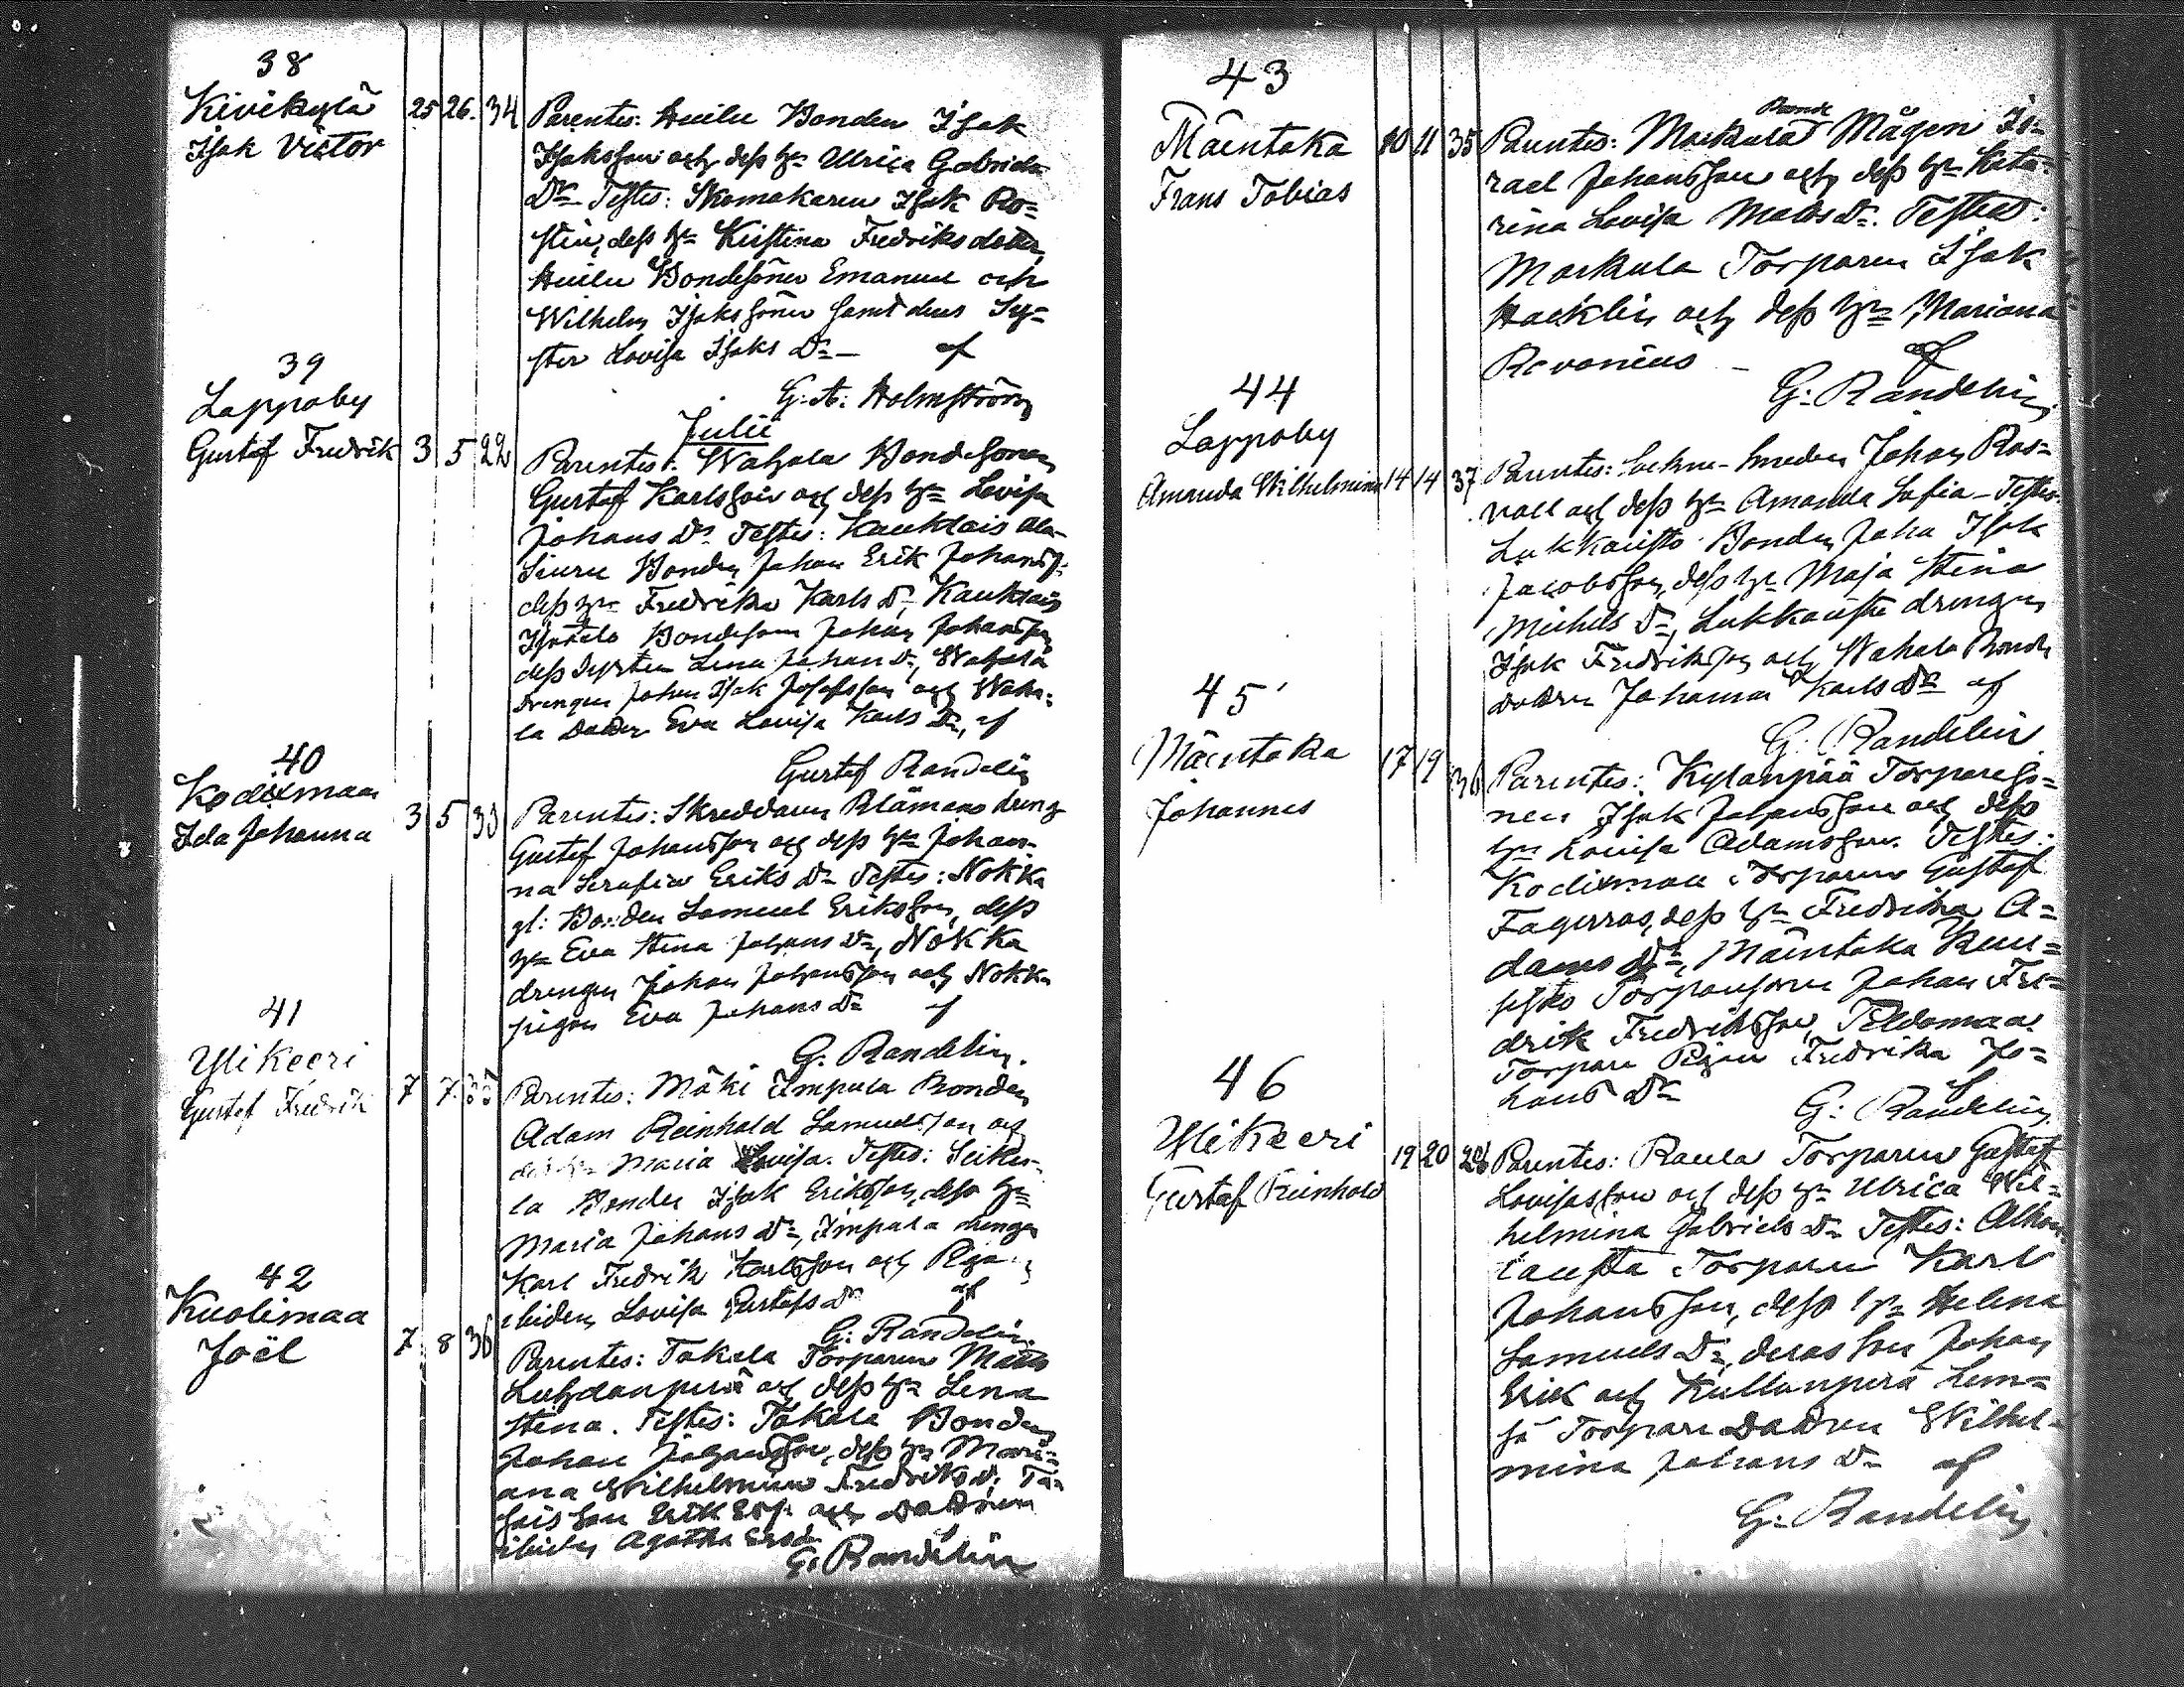 38
Kivikylä
Isak Victor
25 26. 34
Parentes: Huilu Bonden Isak
Isaksson och dess hu Ulrica Gabriels
Dr. Testes: Skomakaren Isak Ro=
stin, dess hu Kristina Fredriksdotter,
Huilu Bondesöner Emanuel och
Wilhelm Isakssöner samt deras Sy=
ster Lovisa Isaks Dr – af
G. A. Holmström
Julii
39
Lappoby
Gustaf Fredrik
3 5 22
Parentes: Wahala Bondesonen
Gustaf Karlsson och dess hu Lovisa
Johans Dr Testes: Kauklais Ala
Sieru Bonden Johan Erik Johans
dess hu Fredrika Karls Dr, Kauklais
Bondesonen Johan Johansson
dess Syster Lena Johans Dr, Wahala
drengen Johan Isak Josefsson och Waha=
la Dotter Eva Lovisa Karls Dr, af
Gustaf Randelin
40
Kodixmaa
Ida Johanna
3 5 33
Parentes: Skreddaren Blämans dreng
Gustaf Johansson och dess hu Johan=
na Serafia Eriks Dr Testes: Nokka
gl: Bonden Samuel Eriksson, dess
hu Eva Stina Johans Dr, Nokka
drengen Johan Johansson och Nokka
pigan Eva Johans Dr af
G. Randelin.
41
Yli Keeri
Gustaf Fredrik
7 7
Parentes: Mäki Impula Bonden
Adam Reinhold Samuelsson och
dess hu Maria Lovisa. Testes: Seike=
la Bonden Isak Eriksson, dess hu
Maria Johans Dr, Impola drengen
Karl Fredrik Karlsson och Pigan
ibidem Lovisa Gustafs Dr af
G. Randelin.
42
Kuolimaa
Joël
7 8 36
Parentes: Takala Torparen Matts
Luhdanperä och dess hu Lena
Stina. Testes: Takala Bonden
Johan Johansson, dess hu Mari=
ana Wilhelmina Fredriks Dr,
son Erik och Dottren
ibidem Agatha
G. Randelin
43
Mäentaka
Frans Tobias
10 11 35
Bond
Parentes: Markula Mågen Is=
rael Johansson och dess hu Kata=
rina Lovisa Matts Dr. Testes:
Markula Torparen Isak
Hacklin och dess hu Mariana
Revonius – af
G: Randelin
44
Lappoby
Amanda Wilhelmina
14 14 37
Parentes: Sockne-Smeden Johan Ros=
vall och dess hu Amanda Sofia – Testes:
Lukkauisto Bonden Johan Isak
Jacobsson, dess hu Maja Stina
Michels Dr, Lukkauisto drengen
Isak Fredriksson och Wahala Bonde
dottren Johanna Karls Dr af
G. Randelin
45
Mäentaka
Johannes
17 19 36
Parentes: Kylänpää Torpareso=
nen Isak Johansson och dess
hu Lovisa Adamsson. Testes:
Kodixmaa Torparen Gustaf
Fagerros, dess hu Fredrika A=
dams Dr, Mäentaka
Torparsonen Johan Fre=
drik Fredriksson, Peldomaa
Torpare Pigan Fredrika Jo=
hans Dr
G: Randelin
46
Yli Keeri
Gustaf Reinhold
19 20 28
Parentes: Raula Torparen Gustaf
Lovisasson och dess hu Ulrica Wil=
helmina Gabriels Dr Testes: Alhon
lausta Torparen Karl
Johansson, dess hu Helena
Samuels Dr, deras son Johan
Erik och Kullanperä Lem=
sä Torpare Dottren Wilhel=
mina Johans Dr af
G. Randelin